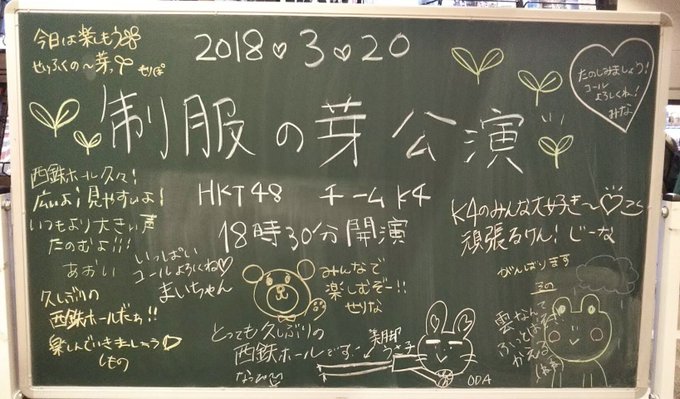 2018♡3♡20
制服の芽公演
HKT48 チームK4
18時30分開演
今日は楽しもう
せいふくの〜芽っ
せりぽ
たのしみましょう!
コール
よろしくね!
みな
西鉄ホール久々!
広いよ!見やすいよ!
いつもより大きい声
たのむよ!!!
あおい
いっぱい
コールよろしくね♡
まいちゃん
久しぶりの
西鉄ホールだぁ!!
楽しんでいきましょう♡
しもの
みんなで
楽しむぞー!!
せりな
とっても久しぶりの
西鉄ホールです
なつみ
美脚
うさ子
ODA
K4のみんな大好き〜♡こら
頑張るりん!じーな
がんばります
雲なんて
ふきとばせ
かえる